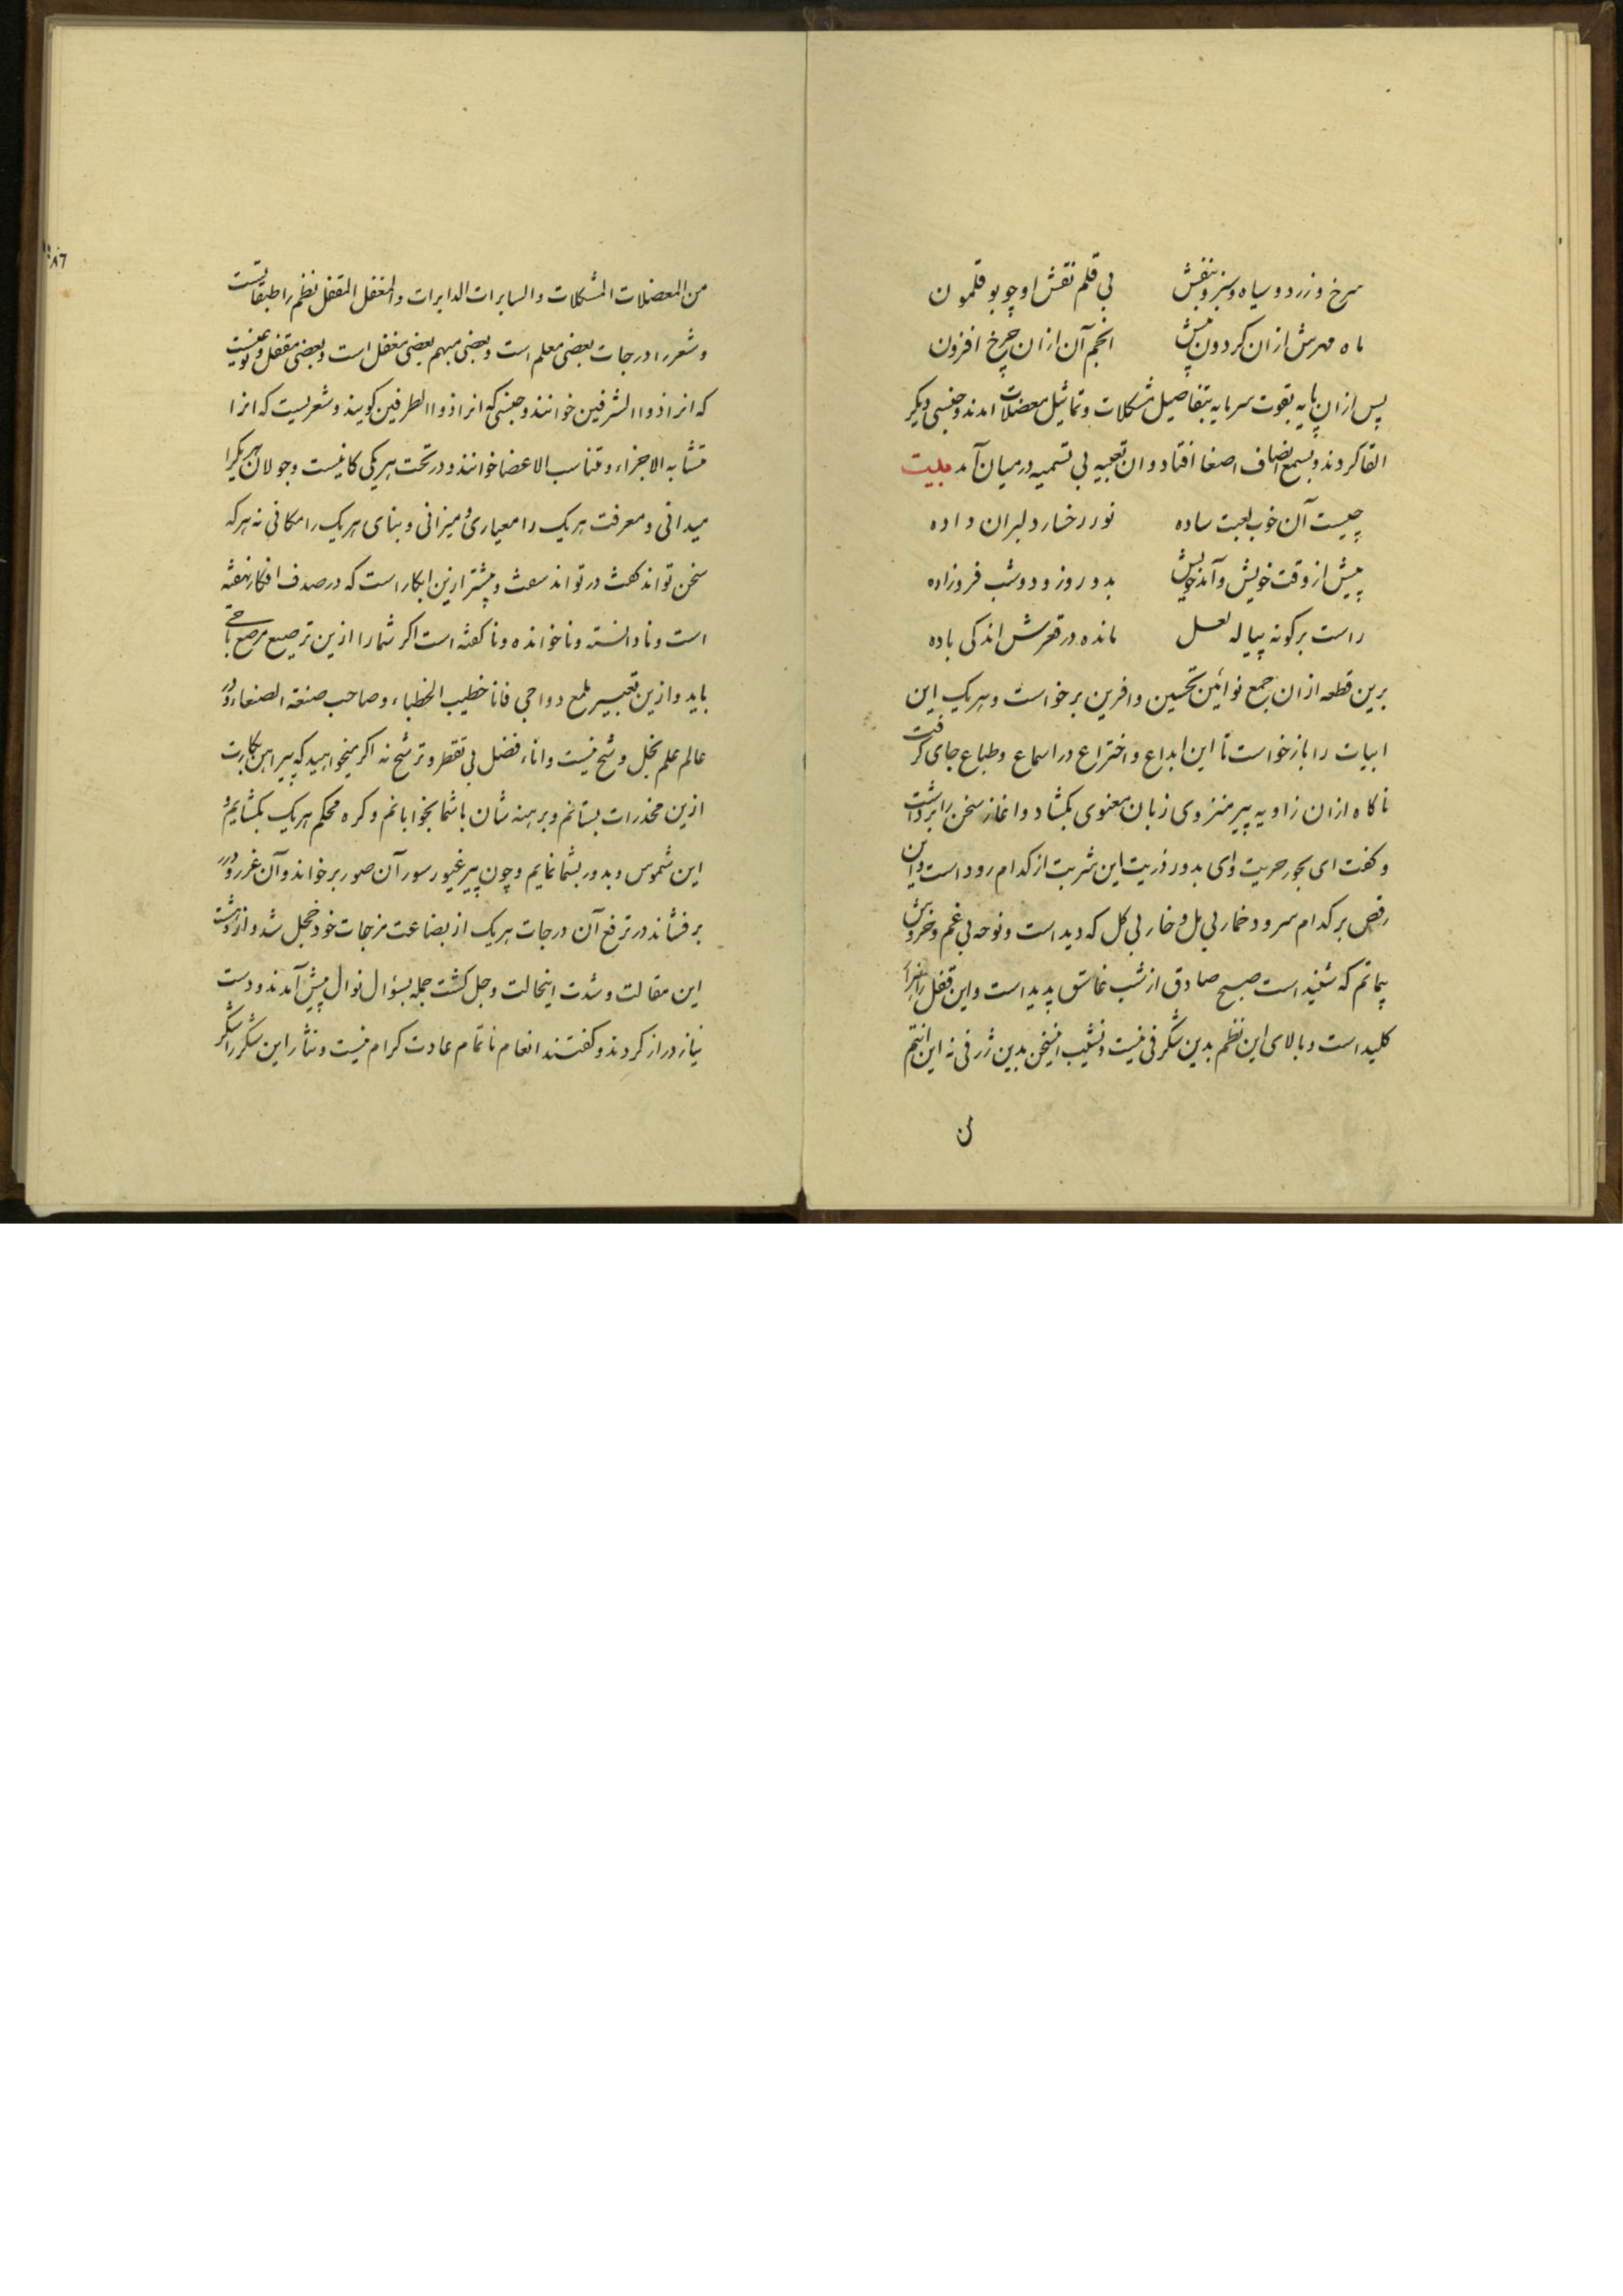 سرخ و زرد و سیاه و سبز و بنفش بی قلم نقش او چو بوقلمون
ماه و مهرش ازان کردون بیش انجم آن ازان چرخ افزون
پس ازان پایه بقوت سرمایه بتفاصیل مشکلات و تماثیل معضلات امدند و جنسی دیگر
القا کردند و بسمع انصاف اصغا افتاد و ان تعبیه بی تسمیه در میان آمد
چیست آن خوب لعبت ساده نور رخسار دلبران داده
پیش از وقت خویش و آمد خویش بدو روز و دو شب فرو زاده
راست بر کونه پیاله لعل مانده در قعرش اندکی باده
برین قطعه ازان جمع نوائین تحسین و افرین برخواست و هر یک این
ابیات را باز خواست تا این ابداع و اختراع در اسماع و طباع جای کرفت
ناکاه ازان زاویه پیر منزوی زبان معنوی بکشاد و اغاز سخن را برداشت
و کفت ای بحور حریت و ای بدور ذریت این شربت از کدام رود است و این
رقص بر کدام سرود خمار بی مل و خار بی کل که دید است و نوحه بی غم و خروش
بی ماتم که شنید است صبح صادق از شب غاسق پدید است و این قفل را نیز
کلید است و بالای این نظم بدین شکرفی نیست و نشیب این سخن بدین ژرفی نه این انتم
من المعضلات المشکلات و السایرات الدایرات و المغفل المقفل نظم را طبقاتیست
و شعر را درجات بعضی معلم است و بعضی مبهم بعضی مغفل است و بعضی مقفل و نوعیست
که انرا ذو الشرفین خوانند و جنسی که انرا ذو الطرفین کویند و شعریست که انرا
متشابه الاجزاء و متناسب الاعضا خوانند و در تحت هر یکی کانیست و جولان هر یکرا
میدانی و معرفت هر یک را معیاری و میزانی و بنای هر یک را مکانی نه هر که
سخن تواند کفت در تواند سفت و بیشتر ازین ابکار است که در صدف افکار نهفته
است و نادانسته و ناخوانده و ناکفته است اکر شما را ازین ترصیع مرصع تاجی
باید و ازین تعبیر ملمع دواجی فانا خطیب الخطباء و صاحب صنعة الصنعاء و در
عالم علم بخل و شح نیست و اناء فضل بی تقطر و ترشح نه اکر میخواهید که پیراهن بکارت
ازین مخدرات بستانم و برهنه شان با شما بخوابانم و کره محکم هر یک بکشایم و
این شموس و بدور بشما نمایم و چون پیر غیور سور آن صور برخواند و آن غرر و درر
برفشاند در ترفع آن درجات هر یک از بضاعت مزجات خود خجل شد و از درشت
این مقالت و شدت اینحالت وجل کشت جمله بسؤال نوال پیش آمدند و دست
نیاز دراز کردند و کفتند انعام ناتمام عادت کرام نیست و نثار این شکر را شکر